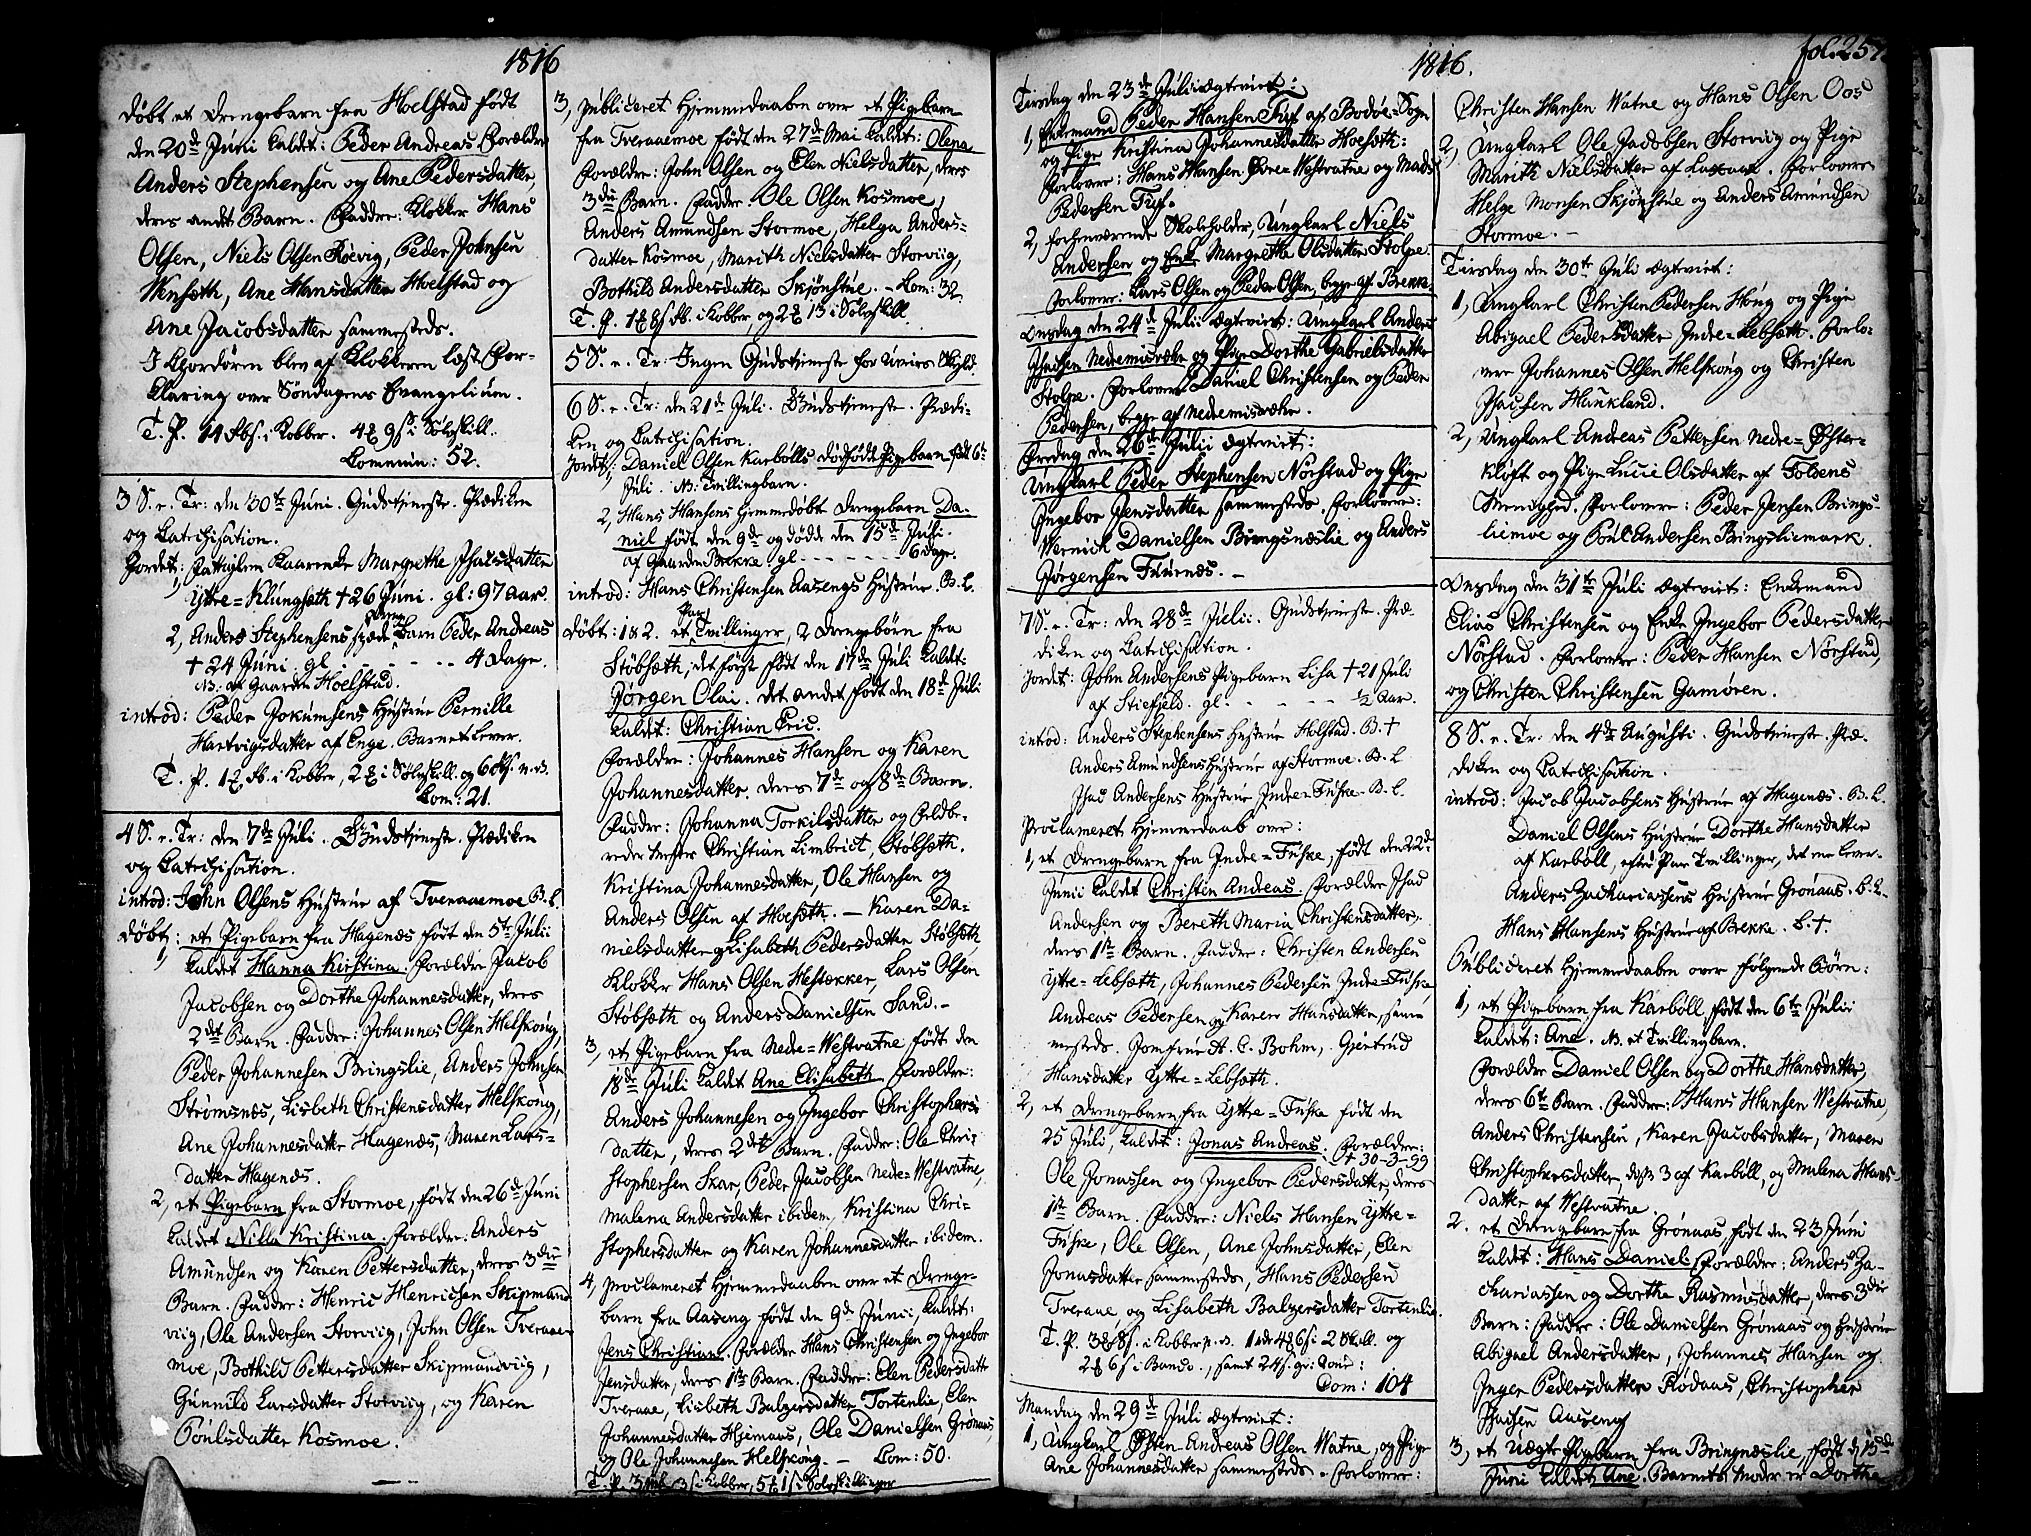 1816
døbt et Drengebarn fra Hoelstad født
den 20de Juni kaldet: Peder Andreas Forældre
Anders Stephensen og Ane Pedersdatter,
deres andet Barn. Faddre: Klokker Hans
Olsen, Niels Olsen Røevig, Peder Johnsen
Wenseth, Ane Hansdatter Hoelstad og
Ane Jacobsdatter sammesteds.
I Chordøren blev af Klokkeren læst For-
klaring over Søndagens Evangelium.
Commun: 52.
3 S. e. Tr: den 30te Juni. Gudstjeneste. Prædiken
og Catechisation.
Jordet: Margrethe Isacsdatter
1, Yttre=Klungseth + 26 Juni. gl: 97 aar.
2, Anders Stephensens spæde Barn Peder Andreas
+ 24 Juni. gl - - - - - 4 Dage.
NB: af Gaarden Hoelstad.
introd: Peder Jokumsens Hustrue Pernille
Hartvigsdatter af Enge. Barnet lever.
Com: 21.
4 S. e. Tr: den 7de Juli. Gudstjeneste. Prædiken
og Catechisation.
introd: John Olsens Hustrue af Tveraaemoe B. L.
døbt: et Pigebarn fra Hagenæs født den 5te Julii
1, kaldet Hanna Kirstina. Forældre Jacob
Jacobsen og Dorthe Johannesdatter, deres
2det Barn. Faddre: Johannes Olsen Helskong,
Peder Johannesen Bringslie, Anders Johnsen
Strømsnes, Lisbeth Christensdatter Helskong,
Ane Johannesdatter Hagenæs, Maren Lars-
datter Hagenæs.
2, et Pigebarn fra Stormoe, født den 26de Juni
kaldet Nilla Kristina. Forældre: Anders
Amundsen og Karen Pettersdatter, deres 3die
Barn. Faddre: Henric Henricsen Skipmand
viig, Ole Andersen Storviig, John Olsen Tveraae-
moe, Bothild Pettersdatter Skipmandviig,
Gunnild Larsdatter Storviig, og Karen
Poulsdatter Kosmoe.
3, publiceret Hjemmedaaben over et Pigebarn
fra Tveraaemoe født den 27de Mai kaldet: Olena
Forældre: John Olsen og Elen Nielsdatter, deres
3die Barn. Faddre Ole Olsen Kosmoe,
Anders Amundsen Stormoe, Helga Anders-
datter Kosmoe, Marith Nielsdatter Storviig,
Bothild Andersdatter Skjønstue. - Com: 32
5 S. e. Tr: Ingen Gudstjeneste for Veirets Skyld.
6 S. e. Tr: den 21de Juli. Gudstjeneste. Prædi-
ken og Catechisation.
Jordet: Daniel Olsen Karbølls dødfødt Pigebarn født 6te
1, Juli. NB: Tvillingbarn.
2, Hans Hansens hjemmedøbte Drengebarn Da-
niel født den 9de og dødde den 15de Juli.
af Gaarden Brekke. gl - - - - - 6 dage.
introd: Hans Christensen Aasengs Hustrue. B. L.
døbt: 1 & 2. et Par Tvillinger, 2 Drengebørn fra
Støbseth, det første født den 17de Juli kaldet:
Jørgen Olai. det andet født den 18de Juli
kaldet: Christian Eric.
Forældre: Johannes Hansen og Karen
Johannesdatter. deres 7de og 8de Barn.
Faddre: Johanna Torkilsdatter og
Christian Limbrict Støbseth.
Kristina Johannesdatter, Ole Hansen og
Anders Olsen af Hoeseth. - Karen Da-
nielsdatter og Lisabeth Pedersdatter Støbseth
Klokker Hans Olsen Hestekker, Lars Olsen
Støbseth og Anders Danielsen Sand. -
3, et Pigebarn fra Nedre=Westvatne født den
18de Juli kaldet Ane Elisabeth Forældre:
Anders Johannesen og Ingebor Christophers
datter, deres 2det Barn. Faddre: Ole Chri-
stophersen Skar, Peder Jacobsen nedre=Westvatne,
Malena Andersdatter ibidem, Kristina Chri-
stophersdatter og Karen Johannesdatter ibidem.
4, proclameret Hjemmedaaben over et Drenge-
barn fra Aaseng født den 9de Junii, kaldet:
Jens Christian. Forældre Hans Christensen og Ingebor
Jensdatter, deres 1ste Barn. Faddre: Elen Pedersdatter
Tveraae, Lisbeth Balzersdatter Tortenlie, Elen
Johannesdatter Hjemaas, Ole Danielsen Grønaas,
og Ole Johannesen Helskong. - Com: 50.
1816.
fol. 257
Tirsdag den 23de Julii ægteviet:
1, Enkemand Peder Hansen Fux af Bodøe=Sogn
og Pige Kristina Johannesdatter Hoeseth:
Forlovere: Hans Hansen Øvre=Westvatne og Mads
Pedersen Fux.
2, forhenværende Skoleholder, Ungkarl Niels
Andersen og Enke Margrethe Olsdatter Stolpe.
Forlovere: Lars Olsen og Peder Olsen, begge af Brekke.
Onsdag den 24de Julii ægteviet: Ungkarl Anders
Isachsen Nedremisvær og Pige Dorthe Gabrielsdatter
Stolpe. Forlovere Daniel Christensen og Peder
Pedersen, begge af
Fredag den 26de Julii ægteviet:
Ungkarl Peder Stephensen Norstad og Pige
Ingebor Jensdatter sammesteds. Forlovere:
Wernich Danielsen Bringsneslie og Anders
Jørgensen Furnes. -
7 S. e. Tr: den 28de Julii. Gudstjeneste. Præ-
diken og Catechisation.
Jordet: John Andersens Pigebarn Lisa + 21 Juli
af Stiefjeld. gl. - - - - ½ Aar.
introd: Anders Stephensens Hustrue Holstad. B. +
Anders Amundsens Hustrue af Stormoe. B. L
Isac Andersens Hustrue Indre=Fuske. B. L.
Proclameret Hjemmedaab over:
1, et Drengebarn fra Indre=Fuske, født den 22de
Junii kaldet Christen Andreas. Forældre Isac
Andersen og Bereth Maria Christensdatter,
deres 1ste Barn. Faddre: Christen Andersen
Yttre=Lebseth, Johannes Pedersen Indre=Fuske
Andreas Pedersen og Karen Hansdatter, sam-
mesteds. Jomfrue A. C. Bohm, Gjertrud
Hansdatter Yttre=Lebseth.
2, et Drengebarn fra Yttre=Fuske født den
25 Juli, kaldet: Jonas Andreas. Forældre:
+ 30-3-99
Ole Jonassen og Ingebor Pedersdatter, deres
1ste Barn. Faddre: Niels Hansen Yttre=
Fuske, Ole Olsen, Ane Johnsdatter, Elen
Jonasdatter sammesteds, Hans Pedersen
Tveraae, og Lisabeth Balzersdatter Tortenlie.
Com: 104
Mandag den 29de Juli ægteviet:
1, Ungkarl Østen Andreas Olsen Watne, og Pige
Ane Johannesdatter sammesteds. Forlovere:
Christen Hansen Watne og Hans Olsen Oos
2, Ungkarl Ole Jacobsen Storviig og Pige
Marith Nielsdatter af Laxaae. Forlovere
Helge Monsen Skjønstue og Anders Amundsen
Stormoe. -
Tirsdag den 30te Juli ægteviet:
1, Ungkarl Christen Pedersen Houg og Pige
Abigael Pedersdatter Indre=Lebseth. Forlo-
vere Johannes Olsen Helskong og Christen
Isacsen Haukland.
2, Ungkarl Andreas Pettersen nedre=Øster-
kløft og Pige Lucie Olsdatter af Foldens
Menighed. Forlovere: Peder Jensen Brings-
liemoe og Poul Andersen Bringsliemark.
Onsdag den 31te Juli ægteviet: Enkemand
Elias Christensen og Enke Ingebor Pedersdatter
Nørstad. Forlovere: Peder Hansen Nørstad,
og Christen Christensen Gamøren.
8 S. e. Tr: den 4de Augusti. Gudstjeneste. Præ-
diken og Catechisation.
introd: Jacob Jacobsens Hustrue af Hagenæs. B. L.
Daniel Olsens Hustrue Dorthe Hansdatter
af Karbøll, efter Par Tvillinger, det ene lever.
Anders Zachariassens Hustrue Grønaas. B. L.
Hans Hansens Hustrue af Brekke. B. +.
Publiceret Hjemmedaaben over følgende Børn:
1, et Pigebarn fra Karbøll, født den 6te Julii
kaldet: Ane. NB. et Tvillingbarn.
Forældre Daniel Olsen og Dorthe Hansdatter,
deres 6te Barn. Faddre: Hans Hansen Westvatne,
Anders Christensen, Karen Jacobsdatter, Maren
Christophersdatter, disse 3 af Karbøll, og Malena Hans-
datter af Westvatne.
2. et Drengebarn fra Grønaas, født den 23 Juni
kaldet: Hans Daniel. Forældre: Anders Za-
chariassen og Dorthe Rasmusdatter, deres 3die
Barn: Faddre: Ole Danielsen Grønaas og Hustrue
Abigael Andersdatter, Johannes Hansen og
Inger Pedersdatter Rødaas, Christopher
Isacsen Aaseng
3, et Uægte Pigebarn fra Bringneslie, født d. 15de
Juni kaldet Ane. Barnets Moder er Dorthe